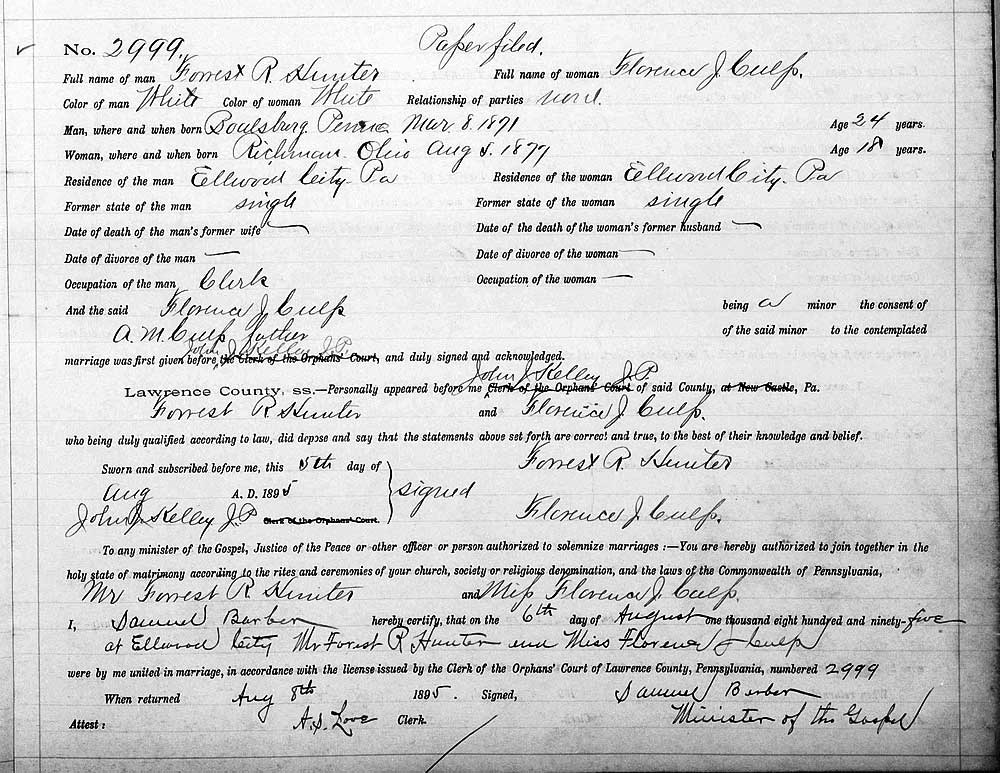 No. 2999. Paper filed.
Full name of man Forrest R. Hunter Full name of woman Florence J. Culp.
Color of man White Color of woman White Relationship of parties none.
Man, where and when born Boalsburg Penna Mar. 8. 1871 Age 24 years.
Woman, where and when born Richman. Ohio Aug 5. 1877 Age 18 years.
Residence of the man Ellwood City. Pa Residence of the woman Ellwood City. Pa
Former state of the man single Former state of the woman single
Date of death of the man's former wife — Date of the death of the woman's former husband —
Date of divorce of the man — Date of divorce of the woman —
Occupation of the man Clerk Occupation of the woman —
And the said Florence J. Culp being a minor the consent of
A. M. Culp father of the said minor to the contemplated
John J. Kelley J.P.
marriage was first given before the Clerk of the Orphans' Court, and duly signed and acknowledged.
John J Kelley J.P
Lawrence County, ss.—Personally appeared before me Clerk of the Orphans' Court of said County, at New Castle, Pa.
Forrest R Hunter and Florence J. Culp.
who being duly qualified according to law, did depose and say that the statements above set forth are correct and true, to the best of their knowledge and belief.
Sworn and subscribed before me, this 5th day of Forrest R. Hunter
Aug A. D. 1895 signed
John J. Kelley J.P Clerk of the Orphans' Court. Florence J. Culp.
To any minister of the Gospel, Justice of the Peace or other officer or person authorized to solemnize marriages :—You are hereby authorized to join together in the
holy state of matrimony according to the rites and ceremonies of your church, society or religious denomination, and the laws of the Commonwealth of Pennsylvania,
Mr Forrest R Hunter and Miss Florence J. Culp.
I, Samuel Barber hereby certify, that on the 6th day of August one thousand eight hundred and ninety-five
at Ellwood City Mr Forest R Hunter and Miss Florence J Culp
were by me united in marriage, in accordance with the license issued by the Clerk of the Orphans' Court of Lawrence County, Pennsylvania, numbered 2999
When returned Aug 8th 1895. Signed, Samuel Barber
Attest: A. S. Love Clerk. Minister of the Gospel